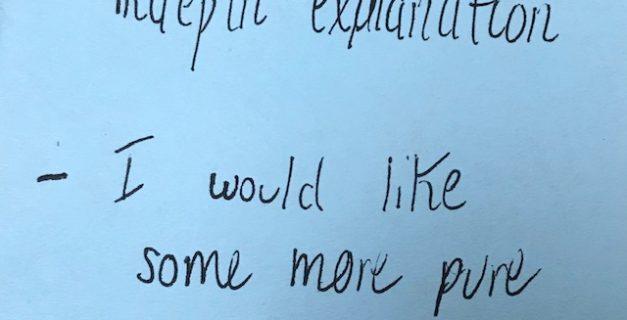 indepth explanation
- I would like
some more pure